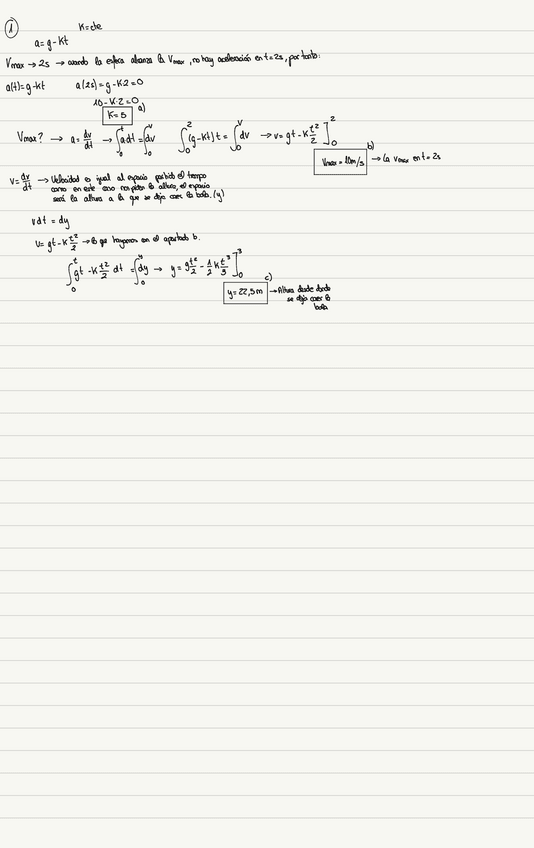 1
K=cte
a=g-Kt
Vmax → 2s → cuando la esfera alcanza la Vmax, no hay aceleración en t=2s, por tanto:
a(t)=g-Kt a(2s)=g-K·2=0
10-K·2=0
K=5 a)
Vmax? → a=dv/dt → ∫₀ᵗ adt=∫₀ⱽ dv ∫₀²(g-Kt)t=∫₀ⱽ dv → v=gt-K t²/2]₀²
b)
Vmax=10m/s → La vmax en t=2s
v=dy/dt → Velocidad es igual al espacio partido el tiempo
como en este caso nos piden la altura, el espacio
será la altura a la que se deja caer la bola. (y)
vdt=dy
v=gt-K t²/2 → lo que hayamos en el apartado b.
∫₀ᵗ gt-K t²/2 dt=∫₀ʸ dy → y=g t²/2 - 1/2 K t³/3]₀³
c)
y=22,5m → Altura desde donde
se deja caer la
bola